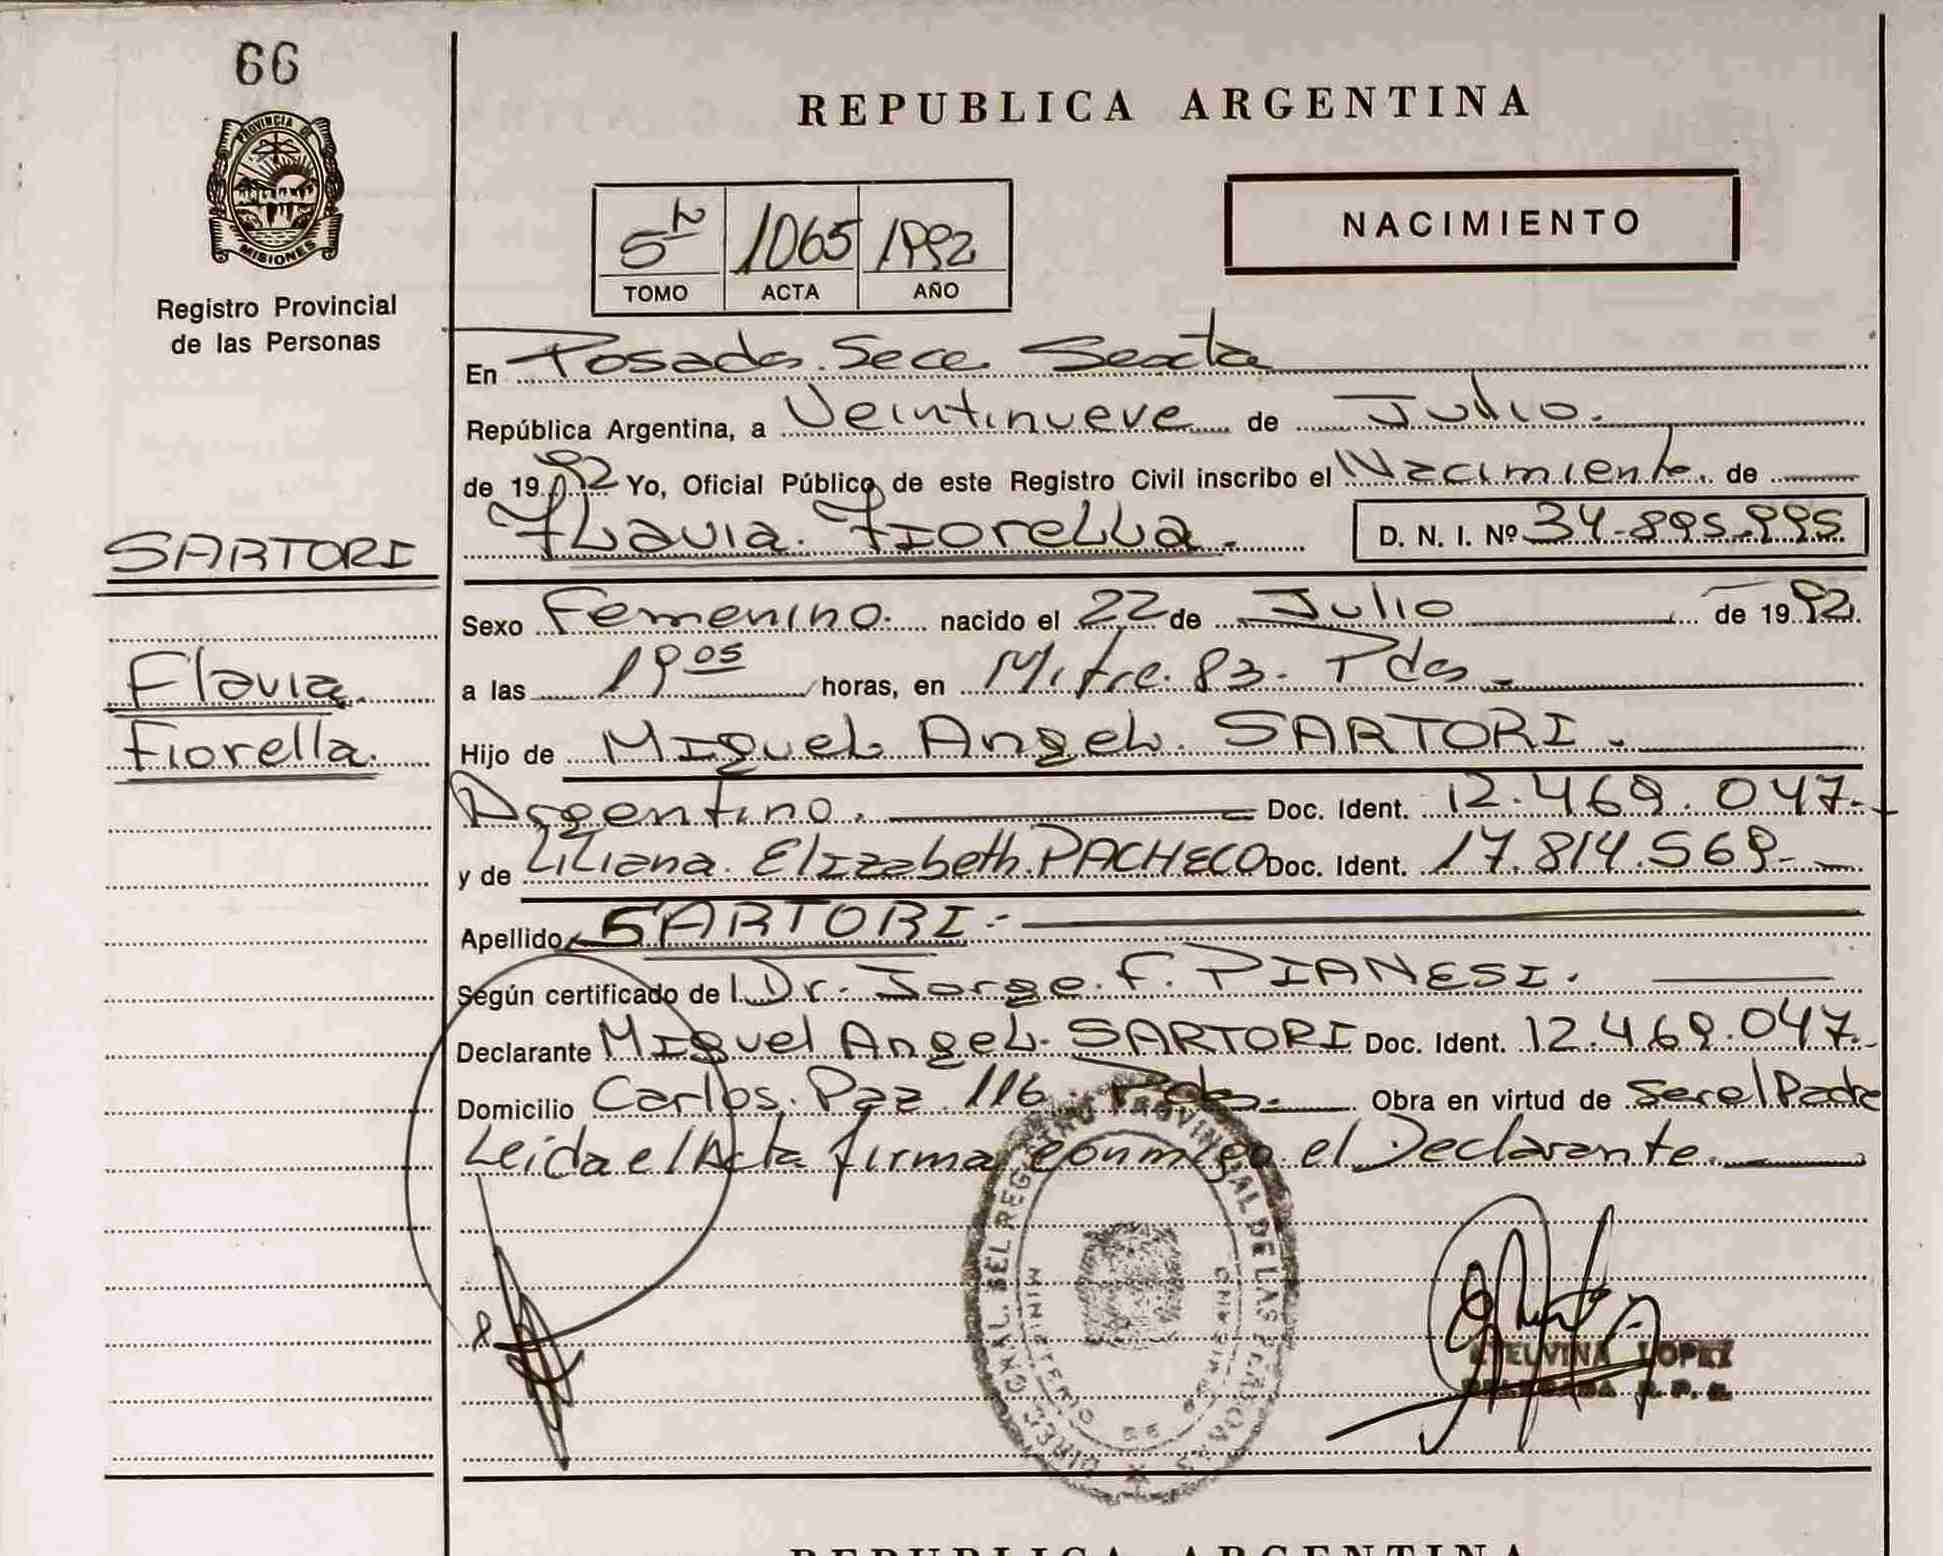 66
PROVINCIA DE
MISIONES
Registro Provincial
de las Personas
REPUBLICA ARGENTINA
5º 1065 1992
TOMO ACTA AÑO
NACIMIENTO
En Posadas. Secc. Sexta
República Argentina, a Veintinueve de Julio.
de 1992 Yo, Oficial Público de este Registro Civil inscribo el Nacimiento. de
Flavia. Fiorella. D. N. I. Nº 34.895.995
SARTORI
Flavia.
Fiorella.
Sexo Femenino. nacido el 22 de Julio de 1992.
a las 19 05 horas, en Mitre. 83. Pdas.
Hijo de Miguel Angel. SARTORI.
Argentino. Doc. Ident. 12.469.047.
y de Liliana. Elizabeth. PACHECO Doc. Ident. 17.814.569.
Apellido SARTORI.
Según certificado de Dr. Jorge. F. PIANESI.
Declarante Miguel Angel. SARTORI Doc. Ident. 12.469.047.
Domicilio Carlos. Paz 116. Pdas. Obra en virtud de Ser el Padre
Leida el Acta firma conmigo el Declarante.
REGISTRO PROVINCIAL DE LAS PERSONAS
MINISTERIO DE
ETELVINA LOPEZ
DELEGADA R. P. P.
REPUBLICA ARGENTINA